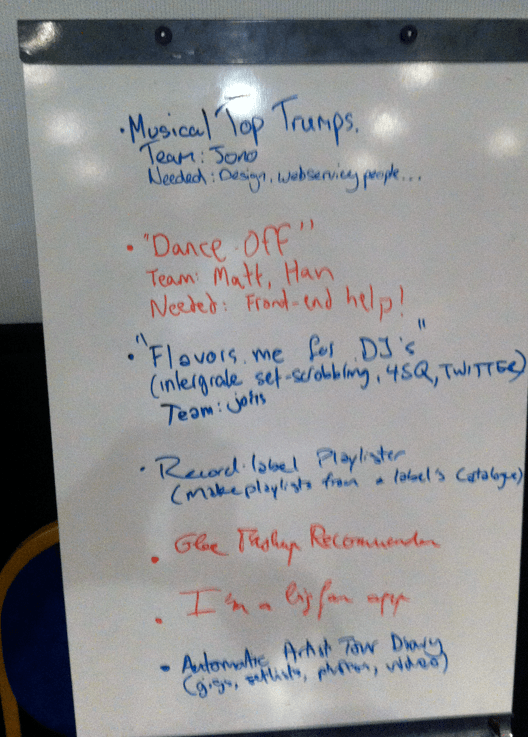 • Musical Top Trumps.
Team: Jono
Needed: Design, webservicey people...
• "Dance Off"
Team: Matt, Han
Needed: Front-end help!
• "Flavors.me for DJ's"
(intergrate set-scrobbling, 4SQ, TWITTER)
Team:
• Record label Playlister
(make playlists from a label's catalogue)
• Glee Mashup Recommender
• I'm a big fan app
• Automatic Artist Tour Diary
(gigs, setlists, photos, video)